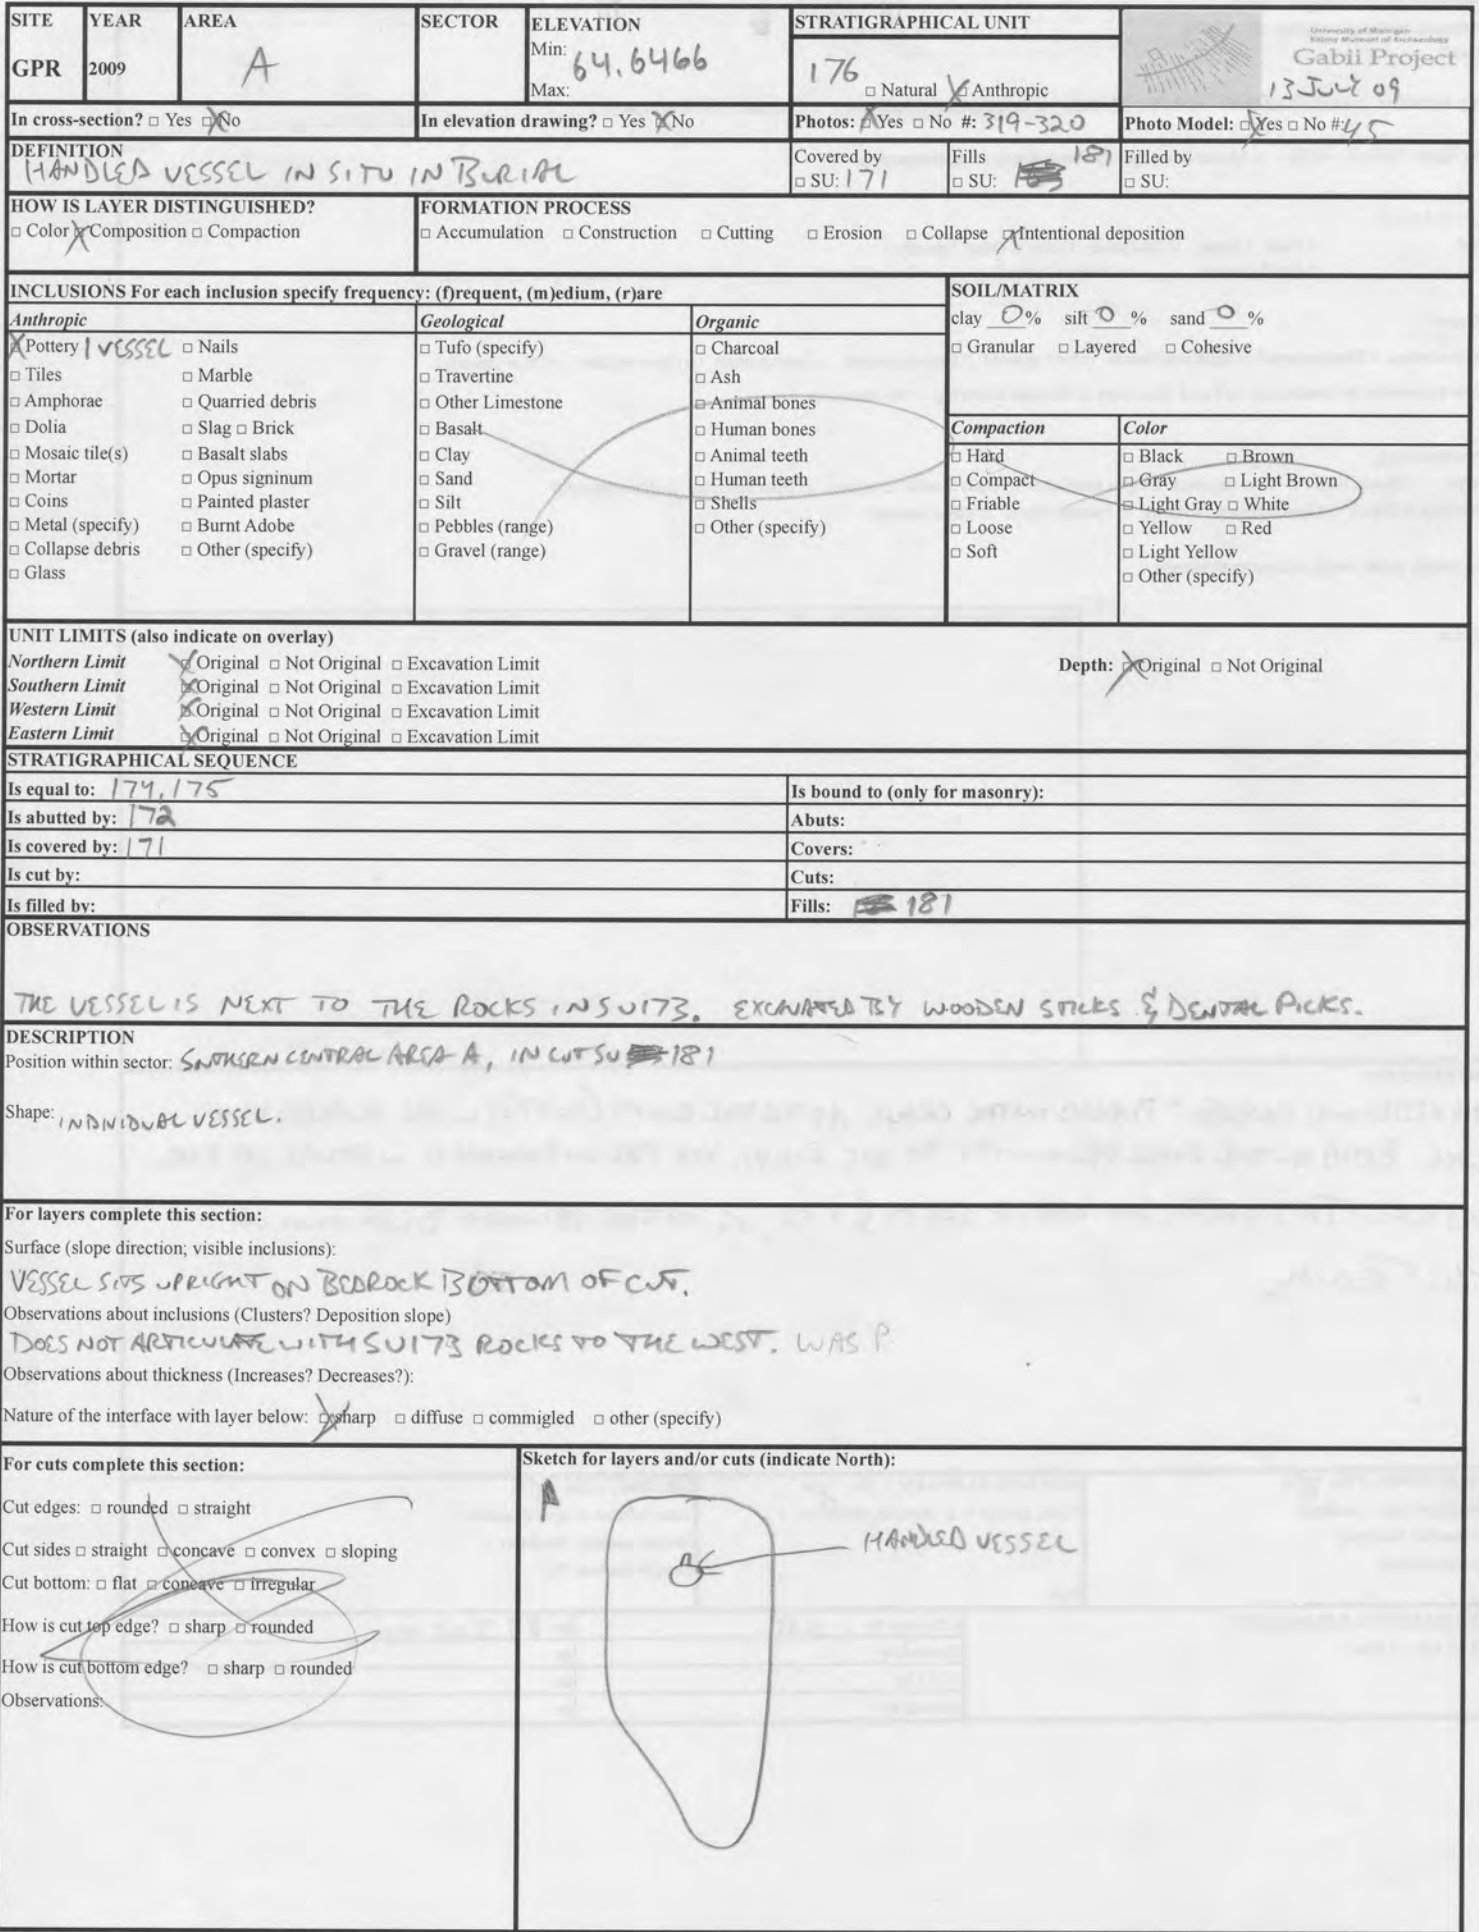 SITE YEAR AREA SECTOR ELEVATION STRATIGRAPHICAL UNIT
GPR 2009 A Min: 64.6466 Max: 176 □ Natural ☒ Anthropic
University of Michigan
Kelsey Museum of Archaeology
Gabii Project
13 JULY 09
In cross-section? □ Yes ☒ No In elevation drawing? □ Yes ☒ No Photos: ☒ Yes □ No #: 319-320 Photo Model: ☒ Yes □ No #: 45
DEFINITION
HANDLED VESSEL IN SITU IN BURIAL
Covered by
□ SU: 171
Fills
□ SU: 181
Filled by
□ SU:
HOW IS LAYER DISTINGUISHED?
□ Color ☒ Composition □ Compaction
FORMATION PROCESS
□ Accumulation □ Construction □ Cutting □ Erosion □ Collapse ☒ Intentional deposition
INCLUSIONS For each inclusion specify frequency: (f)requent, (m)edium, (r)are
Anthropic
☒ Pottery 1 VESSEL □ Nails
□ Tiles □ Marble
□ Amphorae □ Quarried debris
□ Dolia □ Slag □ Brick
□ Mosaic tile(s) □ Basalt slabs
□ Mortar □ Opus signinum
□ Coins □ Painted plaster
□ Metal (specify) □ Burnt Adobe
□ Collapse debris □ Other (specify)
□ Glass
Geological
□ Tufo (specify)
□ Travertine
□ Other Limestone
□ Basalt
□ Clay
□ Sand
□ Silt
□ Pebbles (range)
□ Gravel (range)
Organic
□ Charcoal
□ Ash
□ Animal bones
□ Human bones
□ Animal teeth
□ Human teeth
□ Shells
□ Other (specify)
SOIL/MATRIX
clay 0% silt 0 % sand 0 %
□ Granular □ Layered □ Cohesive
Compaction
□ Hard
□ Compact
□ Friable
□ Loose
□ Soft
Color
□ Black □ Brown
□ Gray □ Light Brown
□ Light Gray □ White
□ Yellow □ Red
□ Light Yellow
□ Other (specify)
UNIT LIMITS (also indicate on overlay)
Northern Limit ☒ Original □ Not Original □ Excavation Limit Depth: ☒ Original □ Not Original
Southern Limit ☒ Original □ Not Original □ Excavation Limit
Western Limit ☒ Original □ Not Original □ Excavation Limit
Eastern Limit ☒ Original □ Not Original □ Excavation Limit
STRATIGRAPHICAL SEQUENCE
Is equal to: 174, 175 Is bound to (only for masonry):
Is abutted by: 172 Abuts:
Is covered by: 171 Covers:
Is cut by: Cuts:
Is filled by: Fills: 181
OBSERVATIONS
THE VESSEL IS NEXT TO THE ROCKS IN SU173. EXCAVATED BY WOODEN STICKS & DENTAL PICKS.
DESCRIPTION
Position within sector: SOUTHERN CENTRAL AREA A, IN CUT SU 181
Shape: INDIVIDUAL VESSEL.
For layers complete this section:
Surface (slope direction; visible inclusions):
VESSEL SITS UPRIGHT ON BEDROCK BOTTOM OF CUT.
Observations about inclusions (Clusters? Deposition slope)
DOES NOT ARTICULATE WITH SU173 ROCKS TO THE WEST. WAS P
Observations about thickness (Increases? Decreases?):
Nature of the interface with layer below: ☒ sharp □ diffuse □ commigled □ other (specify)
For cuts complete this section:
Cut edges: □ rounded □ straight
Cut sides □ straight □ concave □ convex □ sloping
Cut bottom: □ flat □ concave □ irregular
How is cut top edge? □ sharp □ rounded
How is cut bottom edge? □ sharp □ rounded
Observations:
Sketch for layers and/or cuts (indicate North):
HANDLED VESSEL